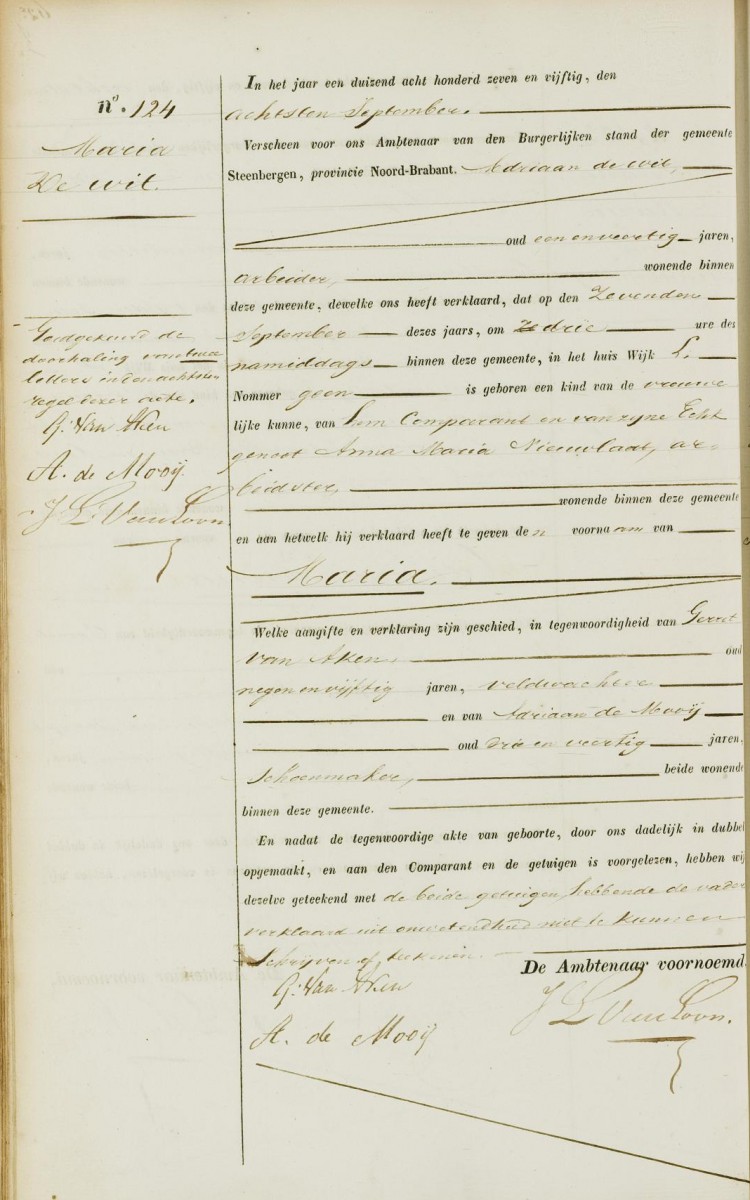 No. 124
Maria
De Wit.
Goedgekeurd de
doorhaling van twee
letters in den achtsten
regel dezer acte.
G: Van Aken
A. de Mooij
J L Van Loon.
In het jaar een duizend acht honderd zeven en vijftig, den
achtsten September.
Verscheen voor ons Ambtenaar van den Burgerlijken stand der gemeente
Steenbergen, provincie Noord-Brabant. Adriaan de Wit,
oud een en veertig jaren,
arbeider, wonende binnen
deze gemeente, dewelke ons heeft verklaard, dat op den Zevenden
September dezes jaars, om drie ure des
namiddags binnen deze gemeente, in het huis Wijk L.
Nommer geen is geboren een kind van de vrouwe
lijke kunne, van hem Comparant en van zijne Echt
genoot Anna Maria Nieuwlaat, ar-
beidster, 
wonende binnen deze gemeente
en aan hetwelk hij verklaard heeft te geven den voornaam van
Maria.
Welke aangifte en verklaring zijn geschied, in tegenwoordigheid van Gerrit
van Aken, oud
negen en vijftig jaren, veldwachter
en van Adriaan de Mooij
oud drie en veertig jaren,
schoenmaker, beide wonende
binnen deze gemeente.
En nadat de tegenwoordige akte van geboorte, door ons dadelijk in dubbel
opgemaakt, en aan den Comparant en de getuigen is voorgelezen, hebben wij
dezelve geteekend met de beide getuigen, hebbende de vader
verklaard uit onwetendheid niet te kunnen
schrijven of teekenen.
De Ambtenaar voornoemd.
G: Van Aken
J L Van Loon.
A. de Mooij